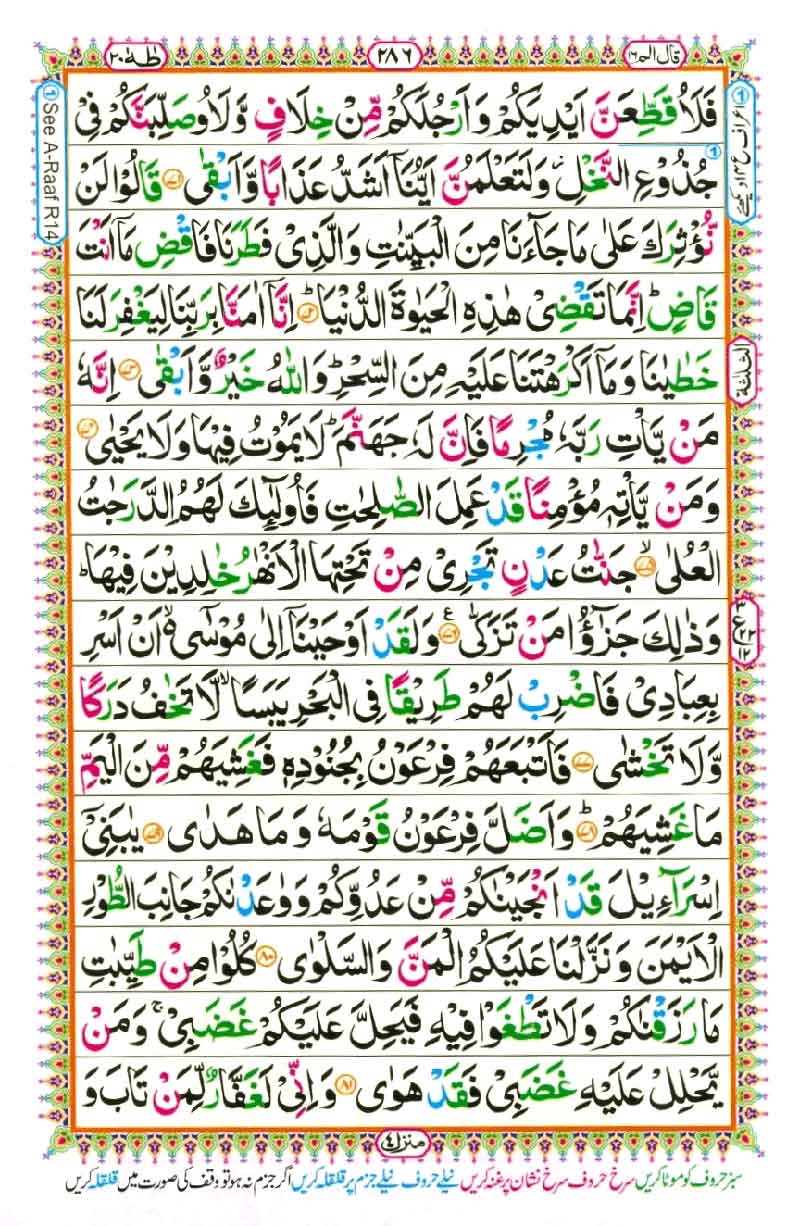 قال الم ١٦
٢٨٦
طٰهٰ ٢٠
فَلَاُ قَطِّعَنَّ اَيْدِيَكُمْ وَاَرْجُلَكُمْ مِّنْ خِلَافٍ وَّلَاُوصَلِّبَنَّكُمْ فِيْ
جُذُوْعِ النَّخْلِ ۫ وَلَتَعْلَمُنَّ اَيُّنَاۤ اَشَدُّ عَذَابًا وَّاَبْقٰى ﴿٧١﴾ قَالُوْا لَنْ
نُّؤْثِرَكَ عَلٰى مَا جَآءَنَا مِنَ الْبَيِّنٰتِ وَالَّذِيْ فَطَرَنَا فَاقْضِ مَاۤ اَنْتَ
قَاضٍ ؕ اِنَّمَا تَقْضِيْ هٰذِهِ الْحَيٰوةَ الدُّنْيَا ﴿٧٢﴾ اِنَّاۤ اٰمَنَّا بِرَبِّنَا لِيَغْفِرَ لَنَا
خَطٰيٰنَا وَمَاۤ اَكْرَهْتَنَا عَلَيْهِ مِنَ السِّحْرِ ؕ وَاللّٰهُ خَيْرٌ وَّاَبْقٰى ﴿٧٣﴾ اِنَّهٗ
مَنْ يَّاْتِ رَبَّهٗ مُجْرِمًا فَاِنَّ لَهٗ جَهَنَّمَ ؕ لَا يَمُوْتُ فِيْهَا وَلَا يَحْيٰى ﴿٧٤﴾
وَمَنْ يَّاْتِهٖ مُؤْمِنًا قَدْ عَمِلَ الصّٰلِحٰتِ فَاُولٰٓئِكَ لَهُمُ الدَّرَجٰتُ
الْعُلٰى ﴿٧٥﴾ جَنّٰتُ عَدْنٍ تَجْرِيْ مِنْ تَحْتِهَا الْاَنْهٰرُ خٰلِدِيْنَ فِيْهَا ؕ
وَذٰلِكَ جَزٰٓؤُا مَنْ تَزَكّٰى ﴿٧٦﴾ وَلَقَدْ اَوْحَيْنَاۤ اِلٰى مُوْسٰۤى ۙ۬ اَنْ اَسْرِ
بِعِبَادِيْ فَاضْرِبْ لَهُمْ طَرِيْقًا فِي الْبَحْرِ يَبَسًا ۙ لَّا تَخٰفُ دَرَكًا
وَّلَا تَخْشٰى ﴿٧٧﴾ فَاَتْبَعَهُمْ فِرْعَوْنُ بِجُنُوْدِهٖ فَغَشِيَهُمْ مِّنَ الْيَمِّ
مَا غَشِيَهُمْ ؕ ﴿٧٨﴾ وَاَضَلَّ فِرْعَوْنُ قَوْمَهٗ وَمَا هَدٰى ﴿٧٩﴾ يٰبَنِيْۤ
اِسْرَآءِيْلَ قَدْ اَنْجَيْنٰكُمْ مِّنْ عَدُوِّكُمْ وَوٰعَدْنٰكُمْ جَانِبَ الطُّوْرِ
الْاَيْمَنَ وَنَزَّلْنَا عَلَيْكُمُ الْمَنَّ وَالسَّلْوٰى ﴿٨٠﴾ كُلُوْا مِنْ طَيِّبٰتِ
مَا رَزَقْنٰكُمْ وَلَا تَطْغَوْا فِيْهِ فَيَحِلَّ عَلَيْكُمْ غَضَبِيْ ۚ وَمَنْ
يَّحْلِلْ عَلَيْهِ غَضَبِيْ فَقَدْ هَوٰى ﴿٨١﴾ وَاِنِّيْ لَغَفَّارٌ لِّمَنْ تَابَ وَ
① See A-Raaf R14
الثلثة
منزل ٤
سبز حروف کو موٹا کریں سرخ حروف سرخ نشان پر غنہ کریں نیلے حروف نیلے جزم پر قلقلہ کریں اگر جزم نہ ہو تو وقف کی صورت میں قلقلہ کریں